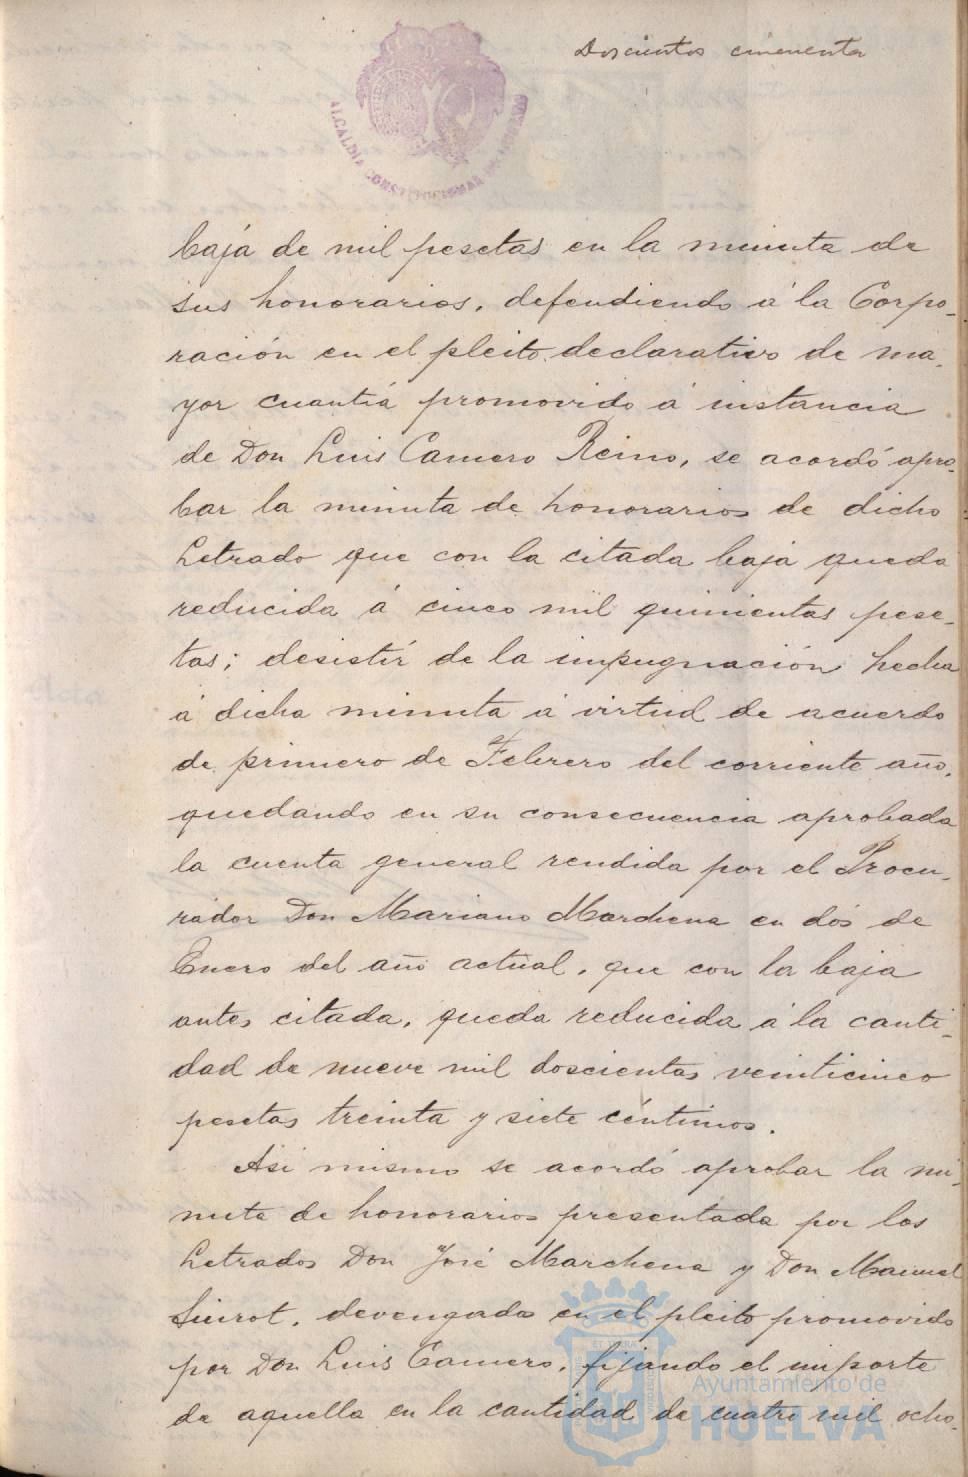 Doscientos cincuenta
ALCALDIA CONSTITUCIONAL
baja de mil pesetas en la minuta de
sus honorarios, defendiendo á la Corpo-
ración en el pleito declarativo de ma-
yor cuantía promovido á instancia
de Don Luis Camero Reino, se acordó apro-
bar la minuta de honorarios de dicho
Letrado que con la citada baja queda
reducida á cinco mil quinientas pese-
tas; desistir de la impugnación hecha
á dicha minuta á virtud de acuerdo
de primero de Febrero del corriente año,
quedando en su consecuencia aprobada
la cuenta general rendida por el Procu-
rador Don Mariano Marchena en dos de
Enero del año actual, que con la baja
antes citada, queda reducida á la canti-
dad de nueve mil doscientas veinticinco
pesetas treinta y siete céntimos.
Asi mismo se acordó aprobar la mi-
nuta de honorarios presentada por los
Letrados Don José Marchena y Don Manuel
Siurot, devengada en el pleito promovido
por Don Luis Camero, fijando el importe
de aquella en la cantidad de cuatro mil ocho-
Ayuntamiento de
HUELVA